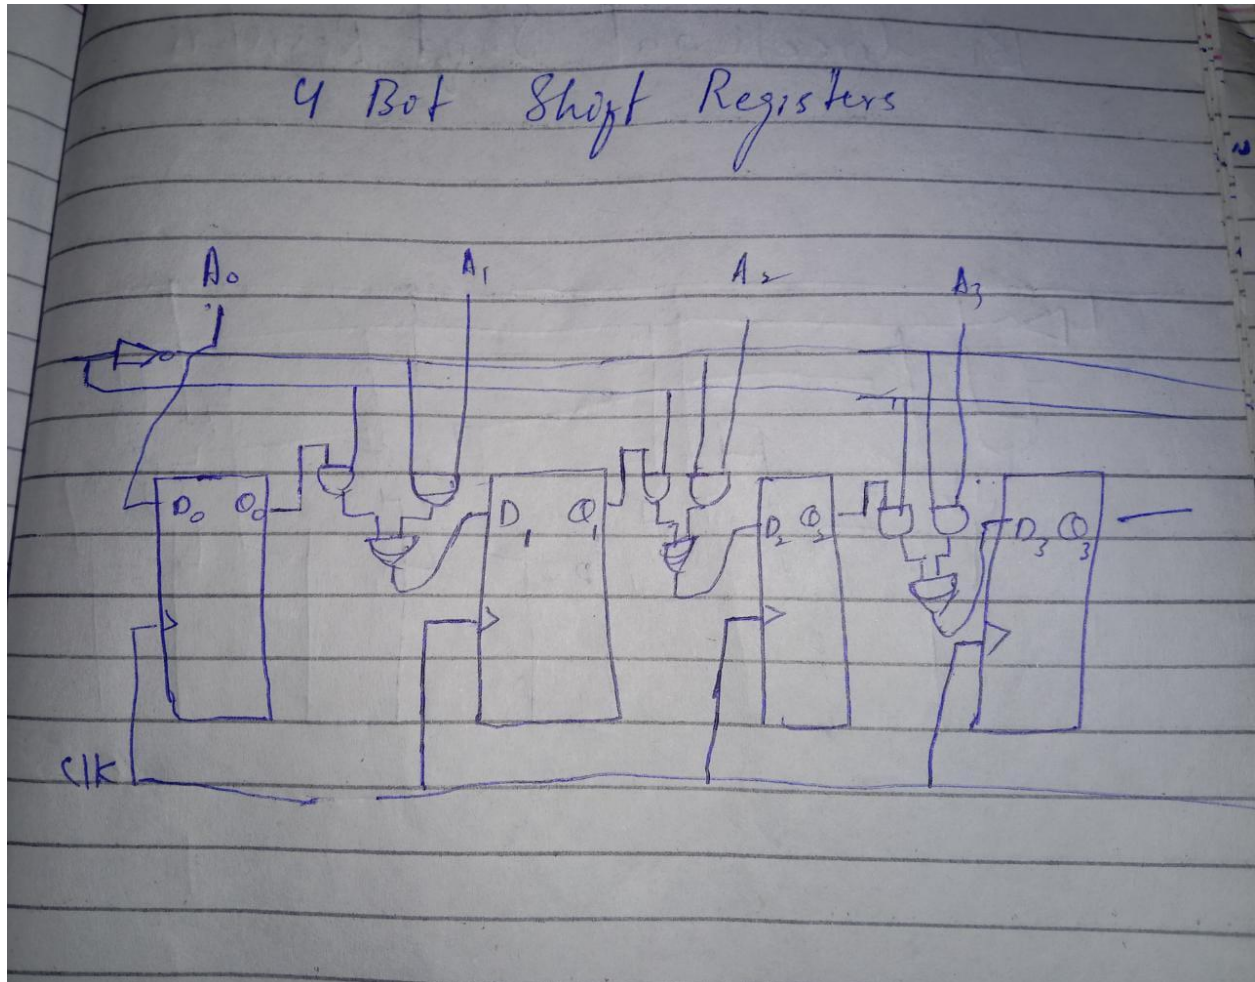 4 Bit Shift Registers
A₀ A₁ A₂ A₃
D₀ Q₀ D₁ Q₁ D₂ Q₂ D₃ Q₃
Clk